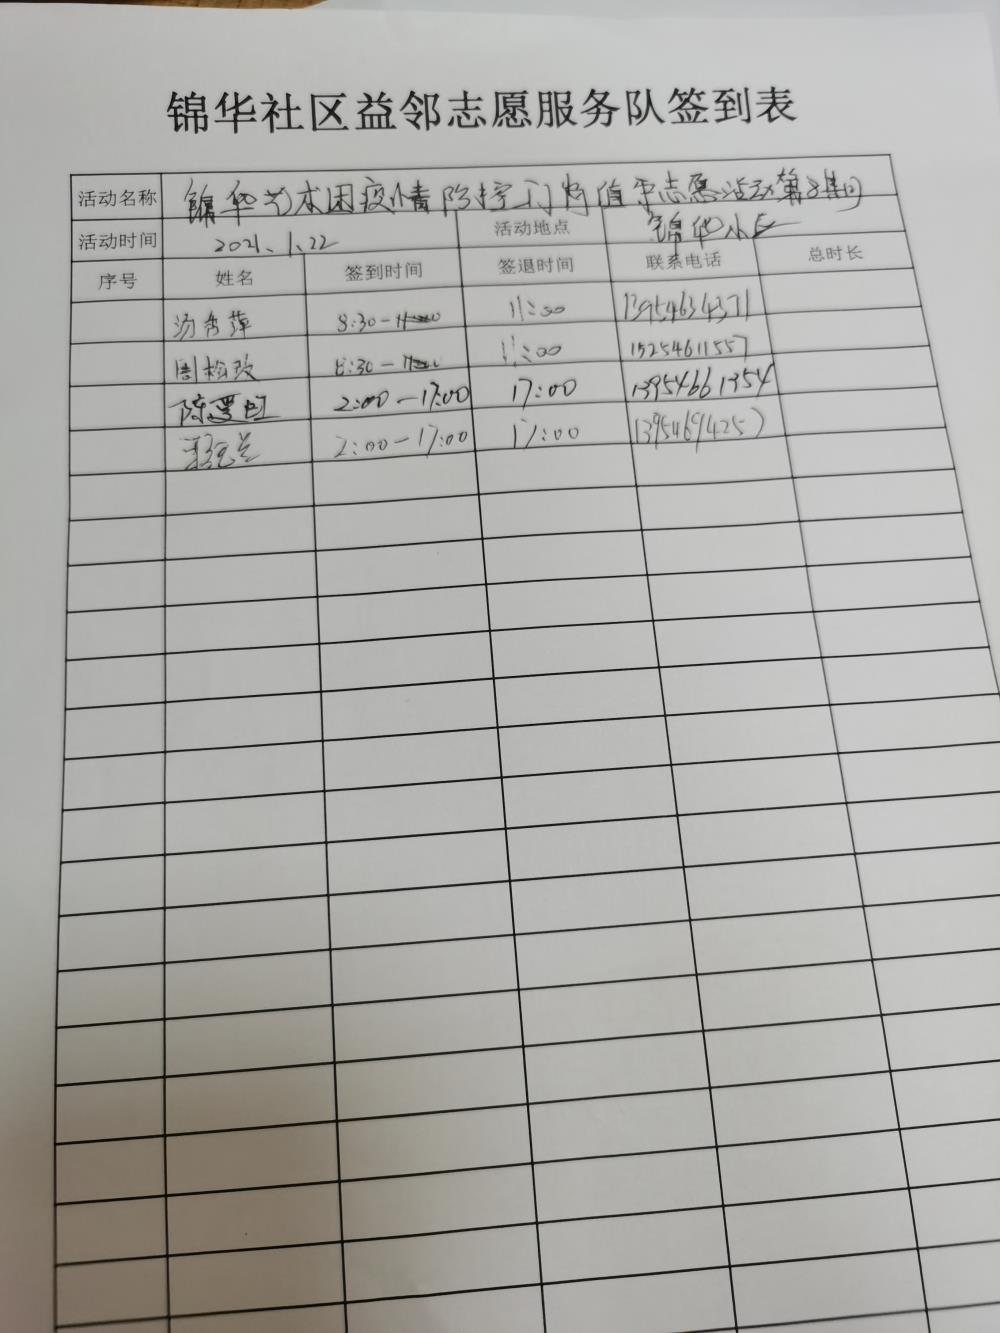 锦华社区益邻志愿服务队签到表
活动名称 锦华 疫情防控门岗值守志愿活动第8期
活动时间 2021.1.22 活动地点 锦华小区
序号 姓名 签到时间 签退时间 联系电话 总时长
汤秀萍 8:30- 11:00 13954634371
周 8:30- 11:00 15254611557
陈 2:00-17:00 17:00 13954661354
2:00-17:00 17:00 13954694257